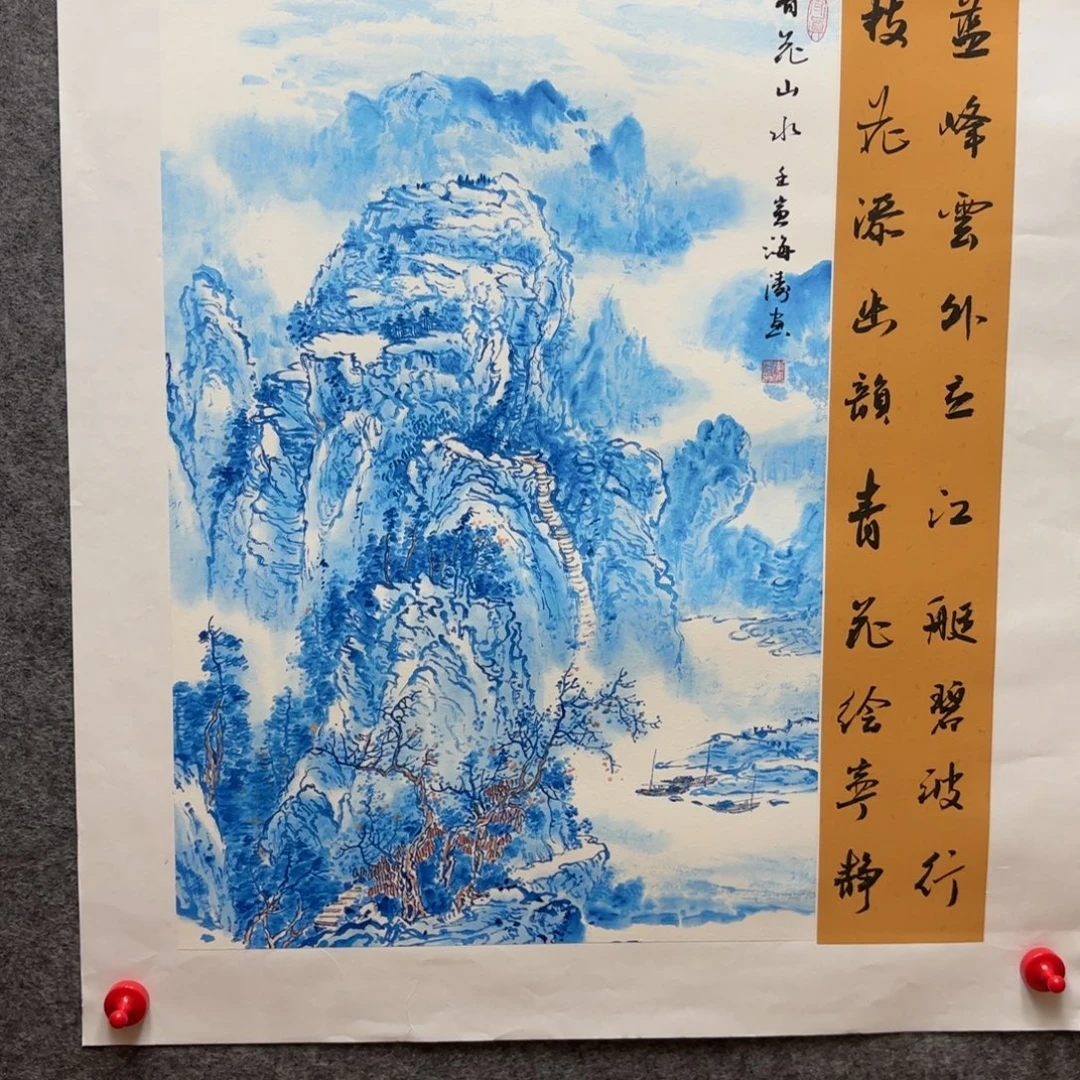 蓝峰雲外立江艇碧波行
枝花添出韻青花绘寧静
青花山水 壬寅海涛画